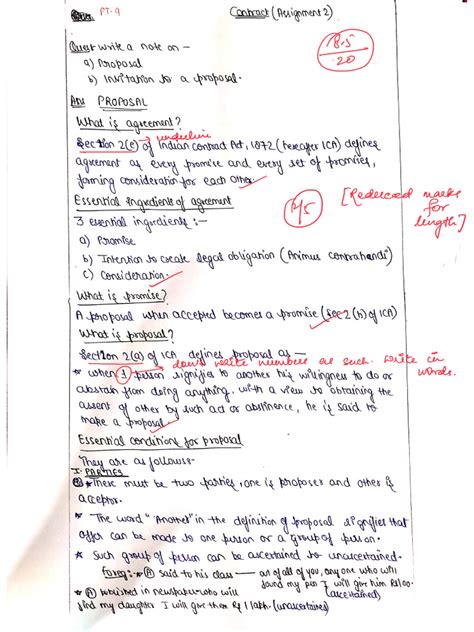 PT-9
Contract (Assignment 2)
18.5
20
Quest write a note on -
a) Proposal
b) Invitation to a proposal.
Ans PROPOSAL
What is agreement?
underline
Section 2(e) of Indian Contract Act, 1872 (hereafter ICA) defines
agreement as every promise and every set of promises,
forming consideration for each other.
Essential ingredients of agreement
[Reduced marks for length]
3 essential ingredients:-
a) Promise
b) Intention to create legal obligation (Animus contrahendi)
c) Consideration.
What is promise?
A proposal when accepted becomes a promise (Sec 2(b) of ICA)
What is proposal?
Section 2(a) of ICA defines proposal as -
don't write numbers as such. write in words.
* When 1 person signifies to another his willingness to do or
abstain from doing anything, with a view to obtaining the
assent of other by such act or abstinence, he is said to
make a proposal.
Essential conditions for proposal
They are as follows:-
I. PARTIES
* There must be two parties, one is proposer and other is
acceptor.
* The word "Another" in the definition of proposal signifies that
offer can be made to one person or a group of person.
* Such group of person can be ascertained to unascertained.
(A) said to his class — out of all of you, any one who will
find my pen I will give him Rs100.
(ascertained)
(A) published in newspaper who will
find my daughter I will give them Rs 1 lakh. (unascertained)